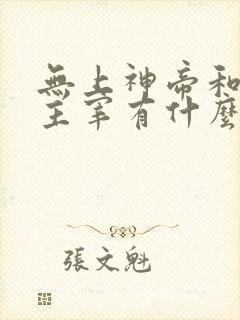 無上神帝和
主宰有什麼
張文魁